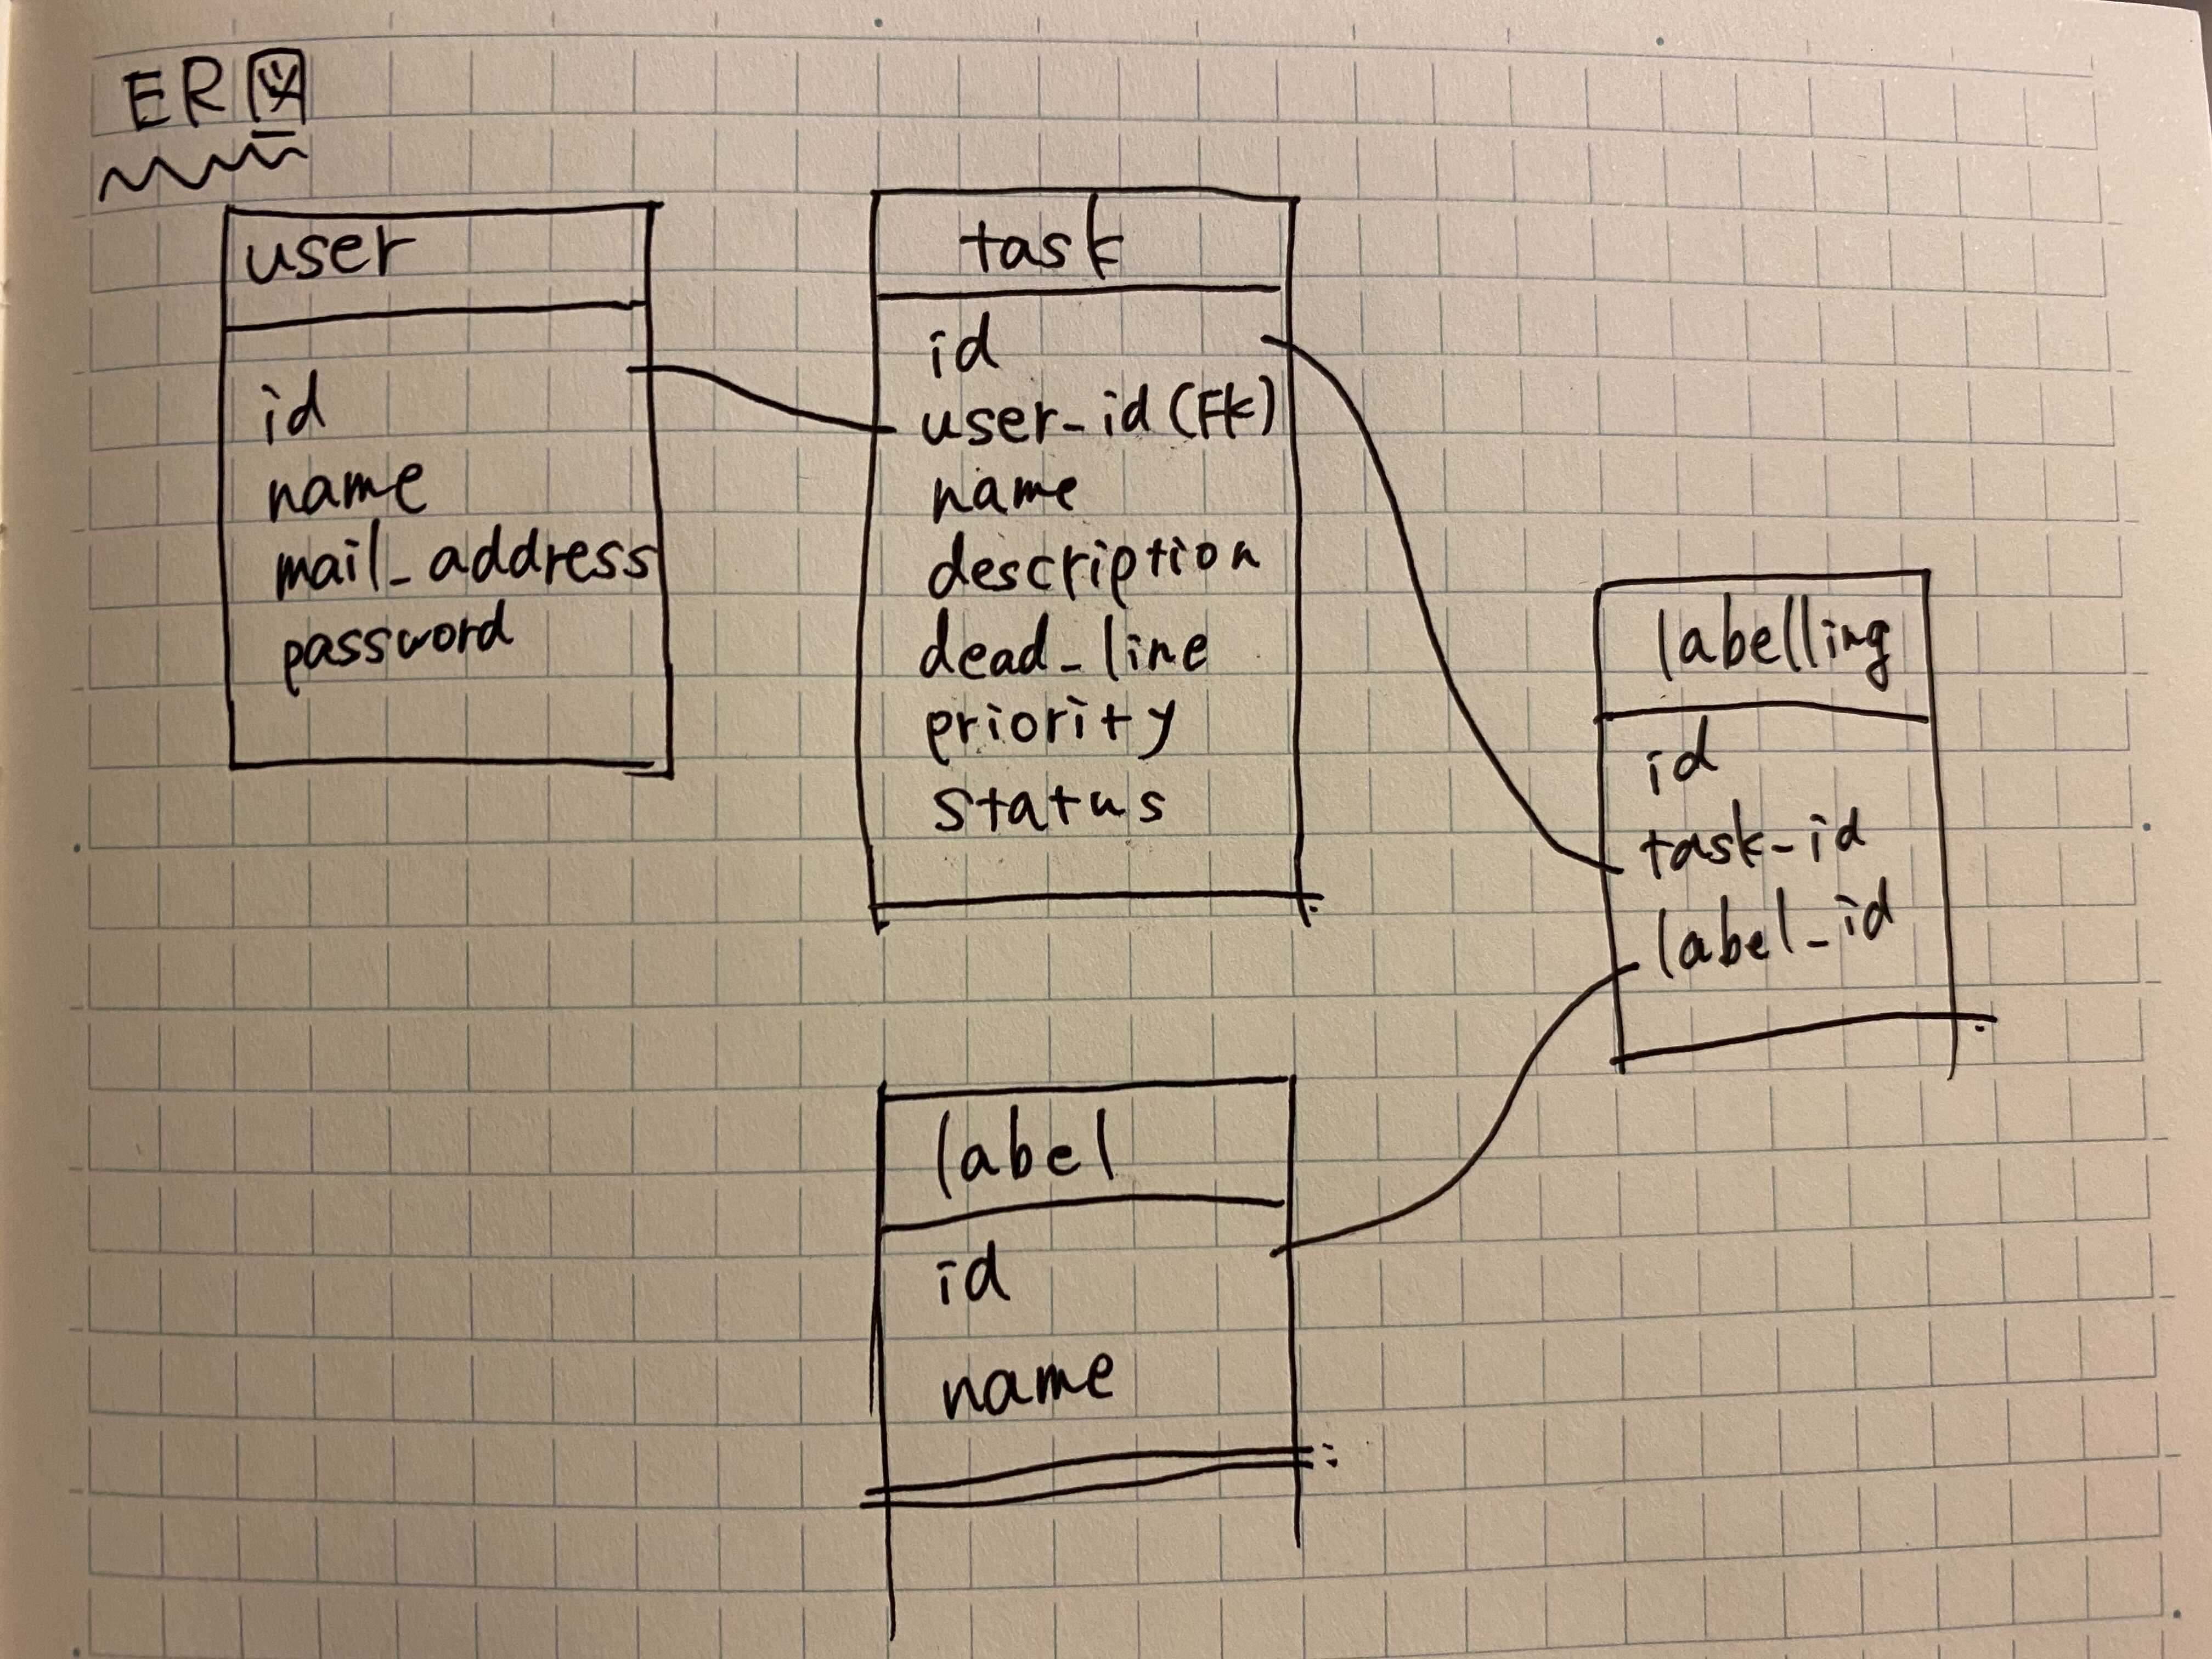 ER図
user
id
name
mail_address
password
task
id
user_id(FK)
name
description
dead_line
priority
status
labelling
id
task_id
label_id
label
id
name